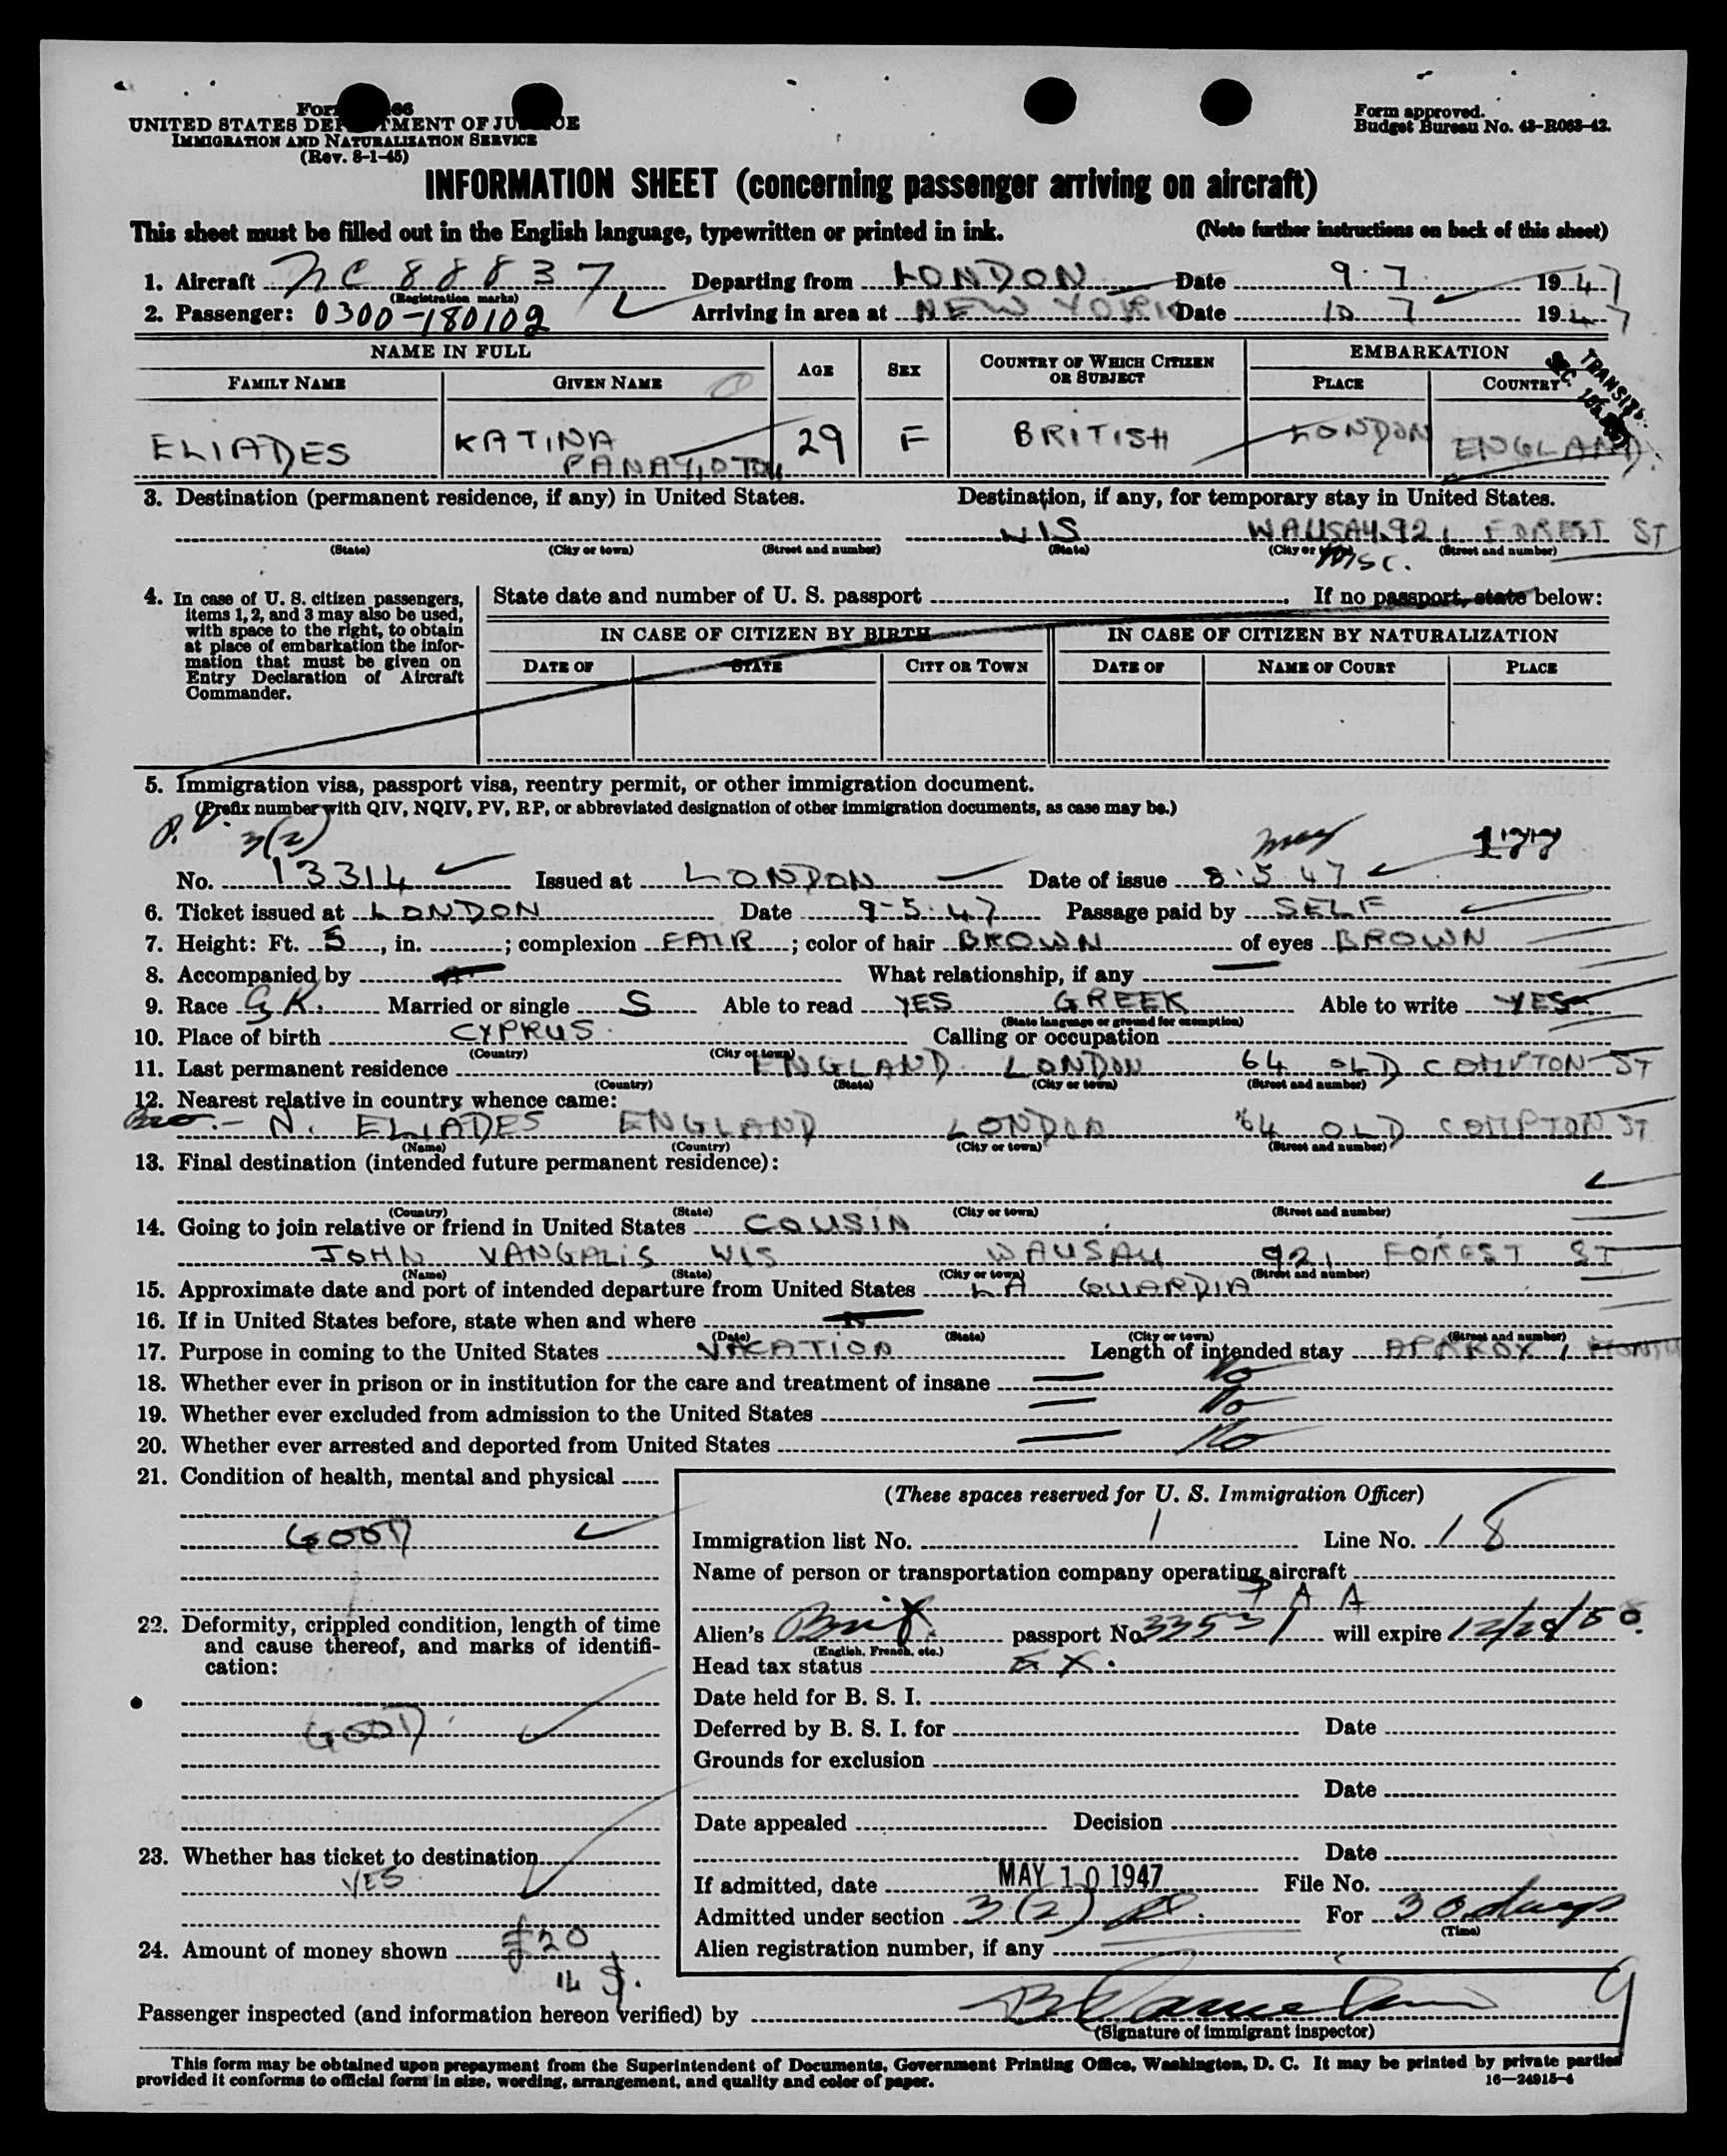 UNITED STATES DEPARTMENT OF JUSTICE
IMMIGRATION AND NATURALIZATION SERVICE
(Rev. 8-1-45)
Form approved.
Budget Bureau No. 43-R063-42.
INFORMATION SHEET (concerning passenger arriving on aircraft)
This sheet must be filled out in the English language, typewritten or printed in ink. (Note further instructions on back of this sheet)
1. Aircraft NC 88837 Departing from LONDON Date 9.7. 1947
(Registration marks)
2. Passenger: 0300-180109 Arriving in area at NEW YORK Date 10 7 1947
NAME IN FULL AGE SEX COUNTRY OF WHICH CITIZEN OR SUBJECT EMBARKATION
FAMILY NAME GIVEN NAME PLACE COUNTRY
TRANSIT
ELIADES KATINA PANAYIOTOU 29 F BRITISH LONDON ENGLAND
3. Destination (permanent residence, if any) in United States. Destination, if any, for temporary stay in United States.
WIS WAUSAU 921 FOREST ST
(State) (City or town) (Street and number) (State) (City or town) (Street and number)
WISC.
4. In case of U. S. citizen passengers, items 1, 2, and 3 may also be used, with space to the right, to obtain at place of embarkation the information that must be given on Entry Declaration of Aircraft Commander.
State date and number of U. S. passport If no passport, state below:
IN CASE OF CITIZEN BY BIRTH IN CASE OF CITIZEN BY NATURALIZATION
DATE OF STATE CITY OR TOWN DATE OF NAME OF COURT PLACE
5. Immigration visa, passport visa, reentry permit, or other immigration document.
(Prefix number with QIV, NQIV, PV, RP, or abbreviated designation of other immigration documents, as case may be.)
P.V. 3(2) may 177
No. 13314 Issued at LONDON Date of issue 8.5.47
6. Ticket issued at LONDON Date 9-5-47 Passage paid by SELF
7. Height: Ft. 5, in. ; complexion FAIR; color of hair BROWN of eyes BROWN
8. Accompanied by — What relationship, if any —
9. Race GK. Married or single S Able to read YES GREEK Able to write YES
(State language or ground for exemption)
10. Place of birth CYPRUS Calling or occupation
(Country) (City or town)
11. Last permanent residence ENGLAND LONDON 64 OLD COMPTON ST
(Country) (State) (City or town) (Street and number)
12. Nearest relative in country whence came:
Bro.- N. ELIADES ENGLAND LONDON 64 OLD COMPTON ST
(Name) (Country) (City or town) (Street and number)
13. Final destination (intended future permanent residence):
(Country) (State) (City or town) (Street and number)
14. Going to join relative or friend in United States COUSIN
JOHN VANGALIS WIS WAUSAU 921 FOREST ST
(Name) (State) (City or town) (Street and number)
15. Approximate date and port of intended departure from United States LA GUARDIA
16. If in United States before, state when and where
(Date) (State) (City or town) (Street and number)
17. Purpose in coming to the United States VACATION Length of intended stay APPROX 1 MONTH
18. Whether ever in prison or in institution for the care and treatment of insane — No
19. Whether ever excluded from admission to the United States — No
20. Whether ever arrested and deported from United States — No
21. Condition of health, mental and physical
GOOD
22. Deformity, crippled condition, length of time and cause thereof, and marks of identification:
GOOD
23. Whether has ticket to destination
YES
24. Amount of money shown £20
14 $.
(These spaces reserved for U. S. Immigration Officer)
Immigration list No. 1 Line No. 18
Name of person or transportation company operating aircraft
P A A
Alien's Brit. passport No. 33531 will expire 12/28/50
(English, French, etc.)
Head tax status EX.
Date held for B. S. I.
Deferred by B. S. I. for Date
Grounds for exclusion
Date
Date appealed Decision
Date
If admitted, date MAY 10 1947 File No.
Admitted under section 3(2) For 30 days
(Time)
Alien registration number, if any
Passenger inspected (and information hereon verified) by
(Signature of immigrant inspector)
This form may be obtained upon prepayment from the Superintendent of Documents, Government Printing Office, Washington, D. C. It may be printed by private parties
provided it conforms to official form in size, wording, arrangement, and quality and color of paper.
16—24915-4